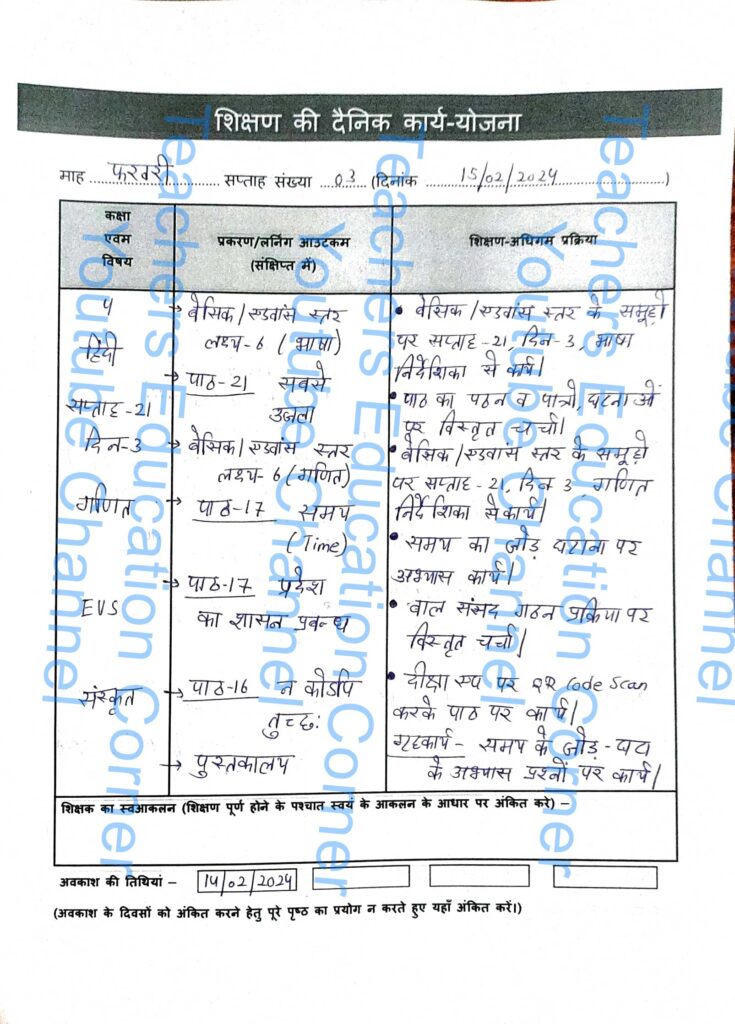 शिक्षण की दैनिक कार्य-योजना
माह फरवरी सप्ताह संख्या 03 (दिनांक 15/02/2024)
कक्षा
एवम
विषय
प्रकरण/लर्निंग आउटकम
(संक्षिप्त में)
शिक्षण-अधिगम प्रक्रिया
5
हिंदी
सप्ताह-21
दिन-3
गणित
EVS
संस्कृत
→ बेसिक/एडवांस स्तर
लक्ष्य-6 (भाषा)
→ पाठ-21 सबसे
उजला
→ बेसिक/एडवांस स्तर
लक्ष्य-6 (गणित)
→ पाठ-17 समय
(Time)
→ पाठ-17 प्रदेश
का शासन प्रबन्ध
→ पाठ-16 न कोडपि
तुच्छः
→ पुस्तकालय
• बेसिक/एडवांस स्तर के समूहो
पर सप्ताह-21, दिन-3, भाषा
निर्देशिका से कार्य।
• पाठ का पठन व पात्रो, घटनाओं
पर विस्तृत चर्चा।
• बेसिक/एडवांस स्तर के समूहो
पर सप्ताह-21, दिन 3, गणित
निर्देशिका से कार्य।
• समय का जोड़ घटाना पर
अभ्यास कार्य।
• बाल संसद गठन प्रक्रिया पर
विस्तृत चर्चा।
• दीक्षा एप पर QR Code Scan
करके पाठ पर कार्य।
गृहकार्य - समय के जोड़-घटा
के अभ्यास प्रश्नों पर कार्य।
शिक्षक का स्वआकलन (शिक्षण पूर्ण होने के पश्चात स्वयं के आकलन के आधार पर अंकित करे) –
अवकाश की तिथियां – 14/02/2024
(अवकाश के दिवसों को अंकित करने हेतु पूरे पृष्ठ का प्रयोग न करते हुए यहाँ अंकित करें।)
Teachers Education Corner
Youtube Channel
Teachers Education Corner
Youtube Channel
Teachers Education Corner
Youtube Channel